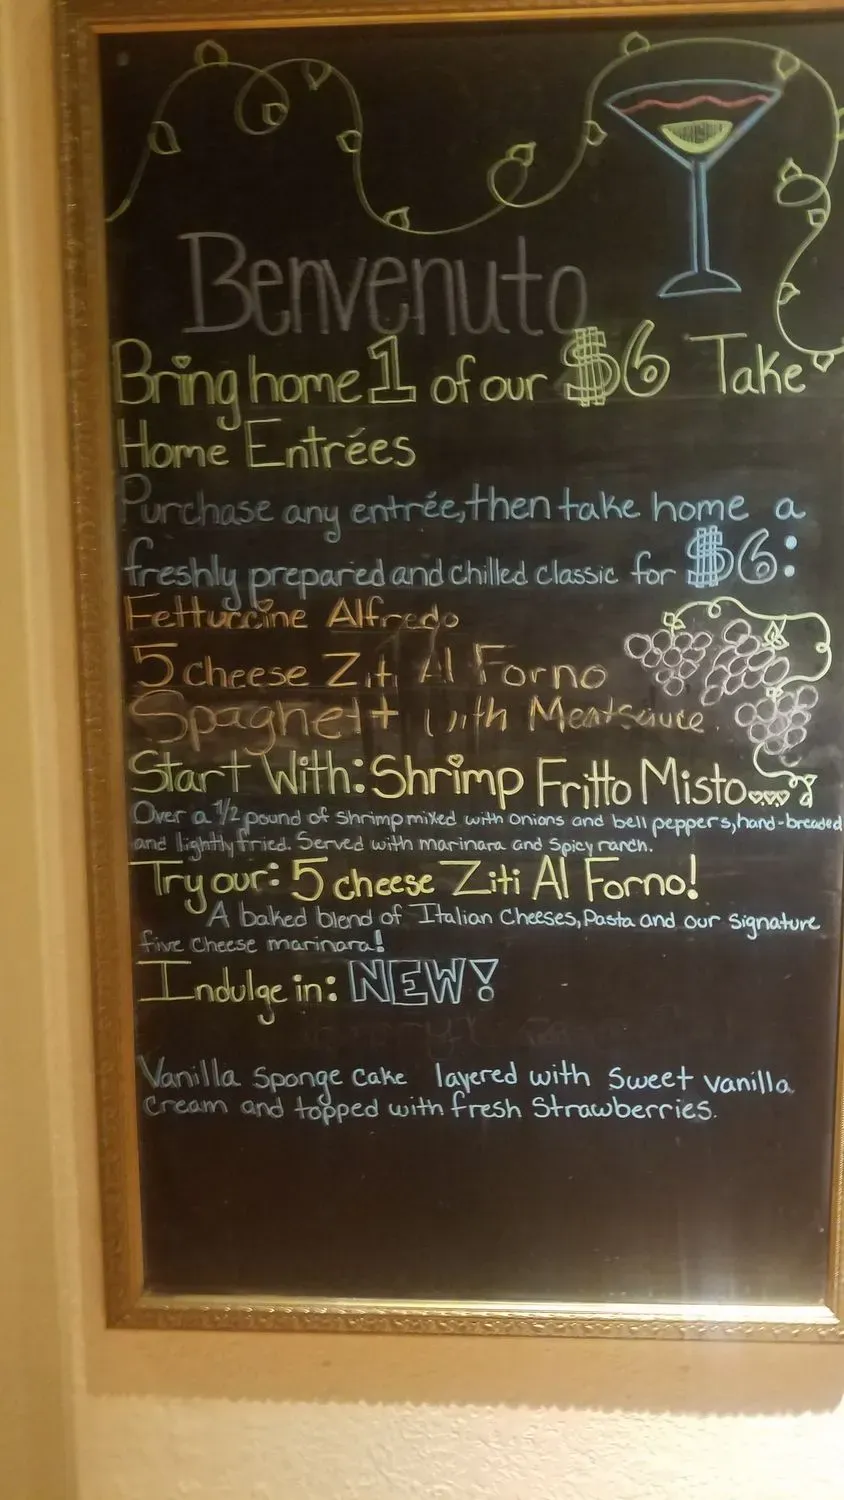 Benvenuto
Bring home 1 of our $6 Take
Home Entrées
Purchase any entrée, then take home a
freshly prepared and chilled classic for $6:
Fettuccine Alfredo
5 cheese Ziti Al Forno
Spaghetti with Meatsauce
Start With: Shrimp Fritto Misto...
Over a 1/2 pound of shrimp mixed with onions and bell peppers, hand-breaded
and lightly fried. Served with marinara and spicy ranch.
Try our: 5 cheese Ziti Al Forno!
A baked blend of Italian Cheeses, Pasta and our signature
five cheese marinara!
Indulge in: NEW!
Vanilla sponge cake layered with sweet vanilla
cream and topped with fresh strawberries.